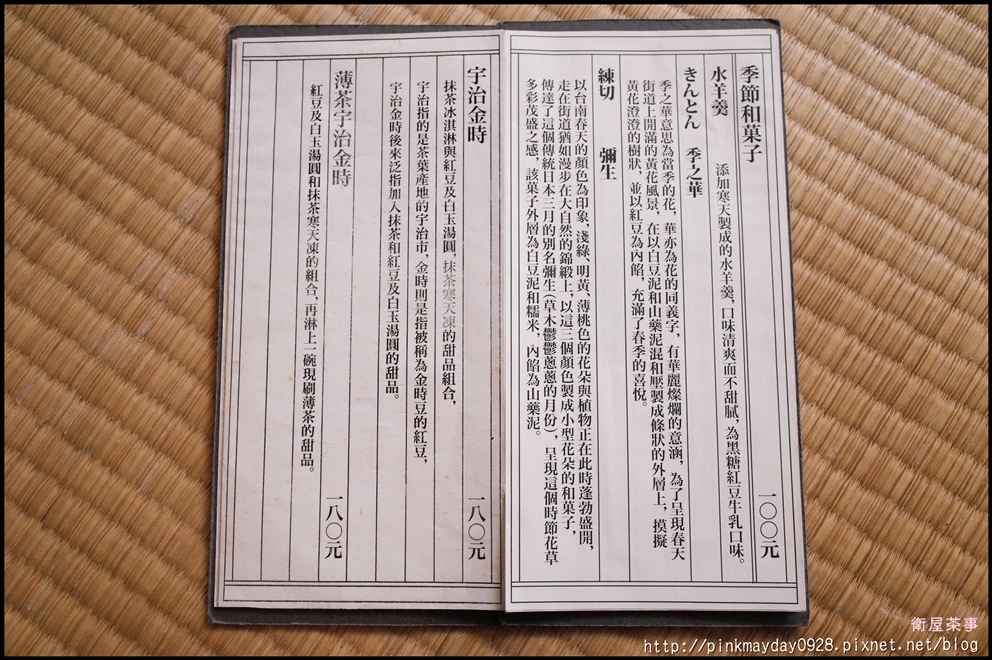 季節和菓子 一〇〇元
水羊羹 添加寒天製成的水羊羹，口味清爽而不甜膩，為黑糖紅豆牛乳口味。
きんとん 季之華
季之華意思為當季的花，華亦為花的同義字，有華麗燦爛的意涵，為了呈現春天
街道上開滿的黃花風景，在以白豆泥和山藥泥混和壓製成條狀的外層上，摸擬
黃花澄澄的樹狀，並以紅豆為內餡，充滿了春季的喜悅。
練切 彌生
以台南春天的顏色為印象，淺綠、明黃、薄桃色的花朵與植物正在此時蓬勃盛開，
走在街道猶如漫步在大自然的錦緞上，以這三個顏色製成小型花朵的和菓子，
傳達了這個傳統日本三月的別名彌生(草木鬱鬱蔥蔥的月份)，呈現這個時節花草
多彩茂盛之感，該菓子外層為白豆泥和糯米，內餡為山藥泥。
宇治金時 一八〇元
抹茶冰淇淋與紅豆及白玉湯圓，抹茶寒天凍的甜品組合，
宇治指的是茶葉產地的宇治市，金時則是指被稱為金時豆的紅豆，
宇治金時後來泛指加入抹茶和紅豆及白玉湯圓的甜品。
薄茶宇治金時 一八〇元
紅豆及白玉湯圓和抹茶寒天凍的組合，再淋上一碗現刷薄茶的甜品。
衛屋茶事
http://pinkmayday0928.pixnet.net/blog